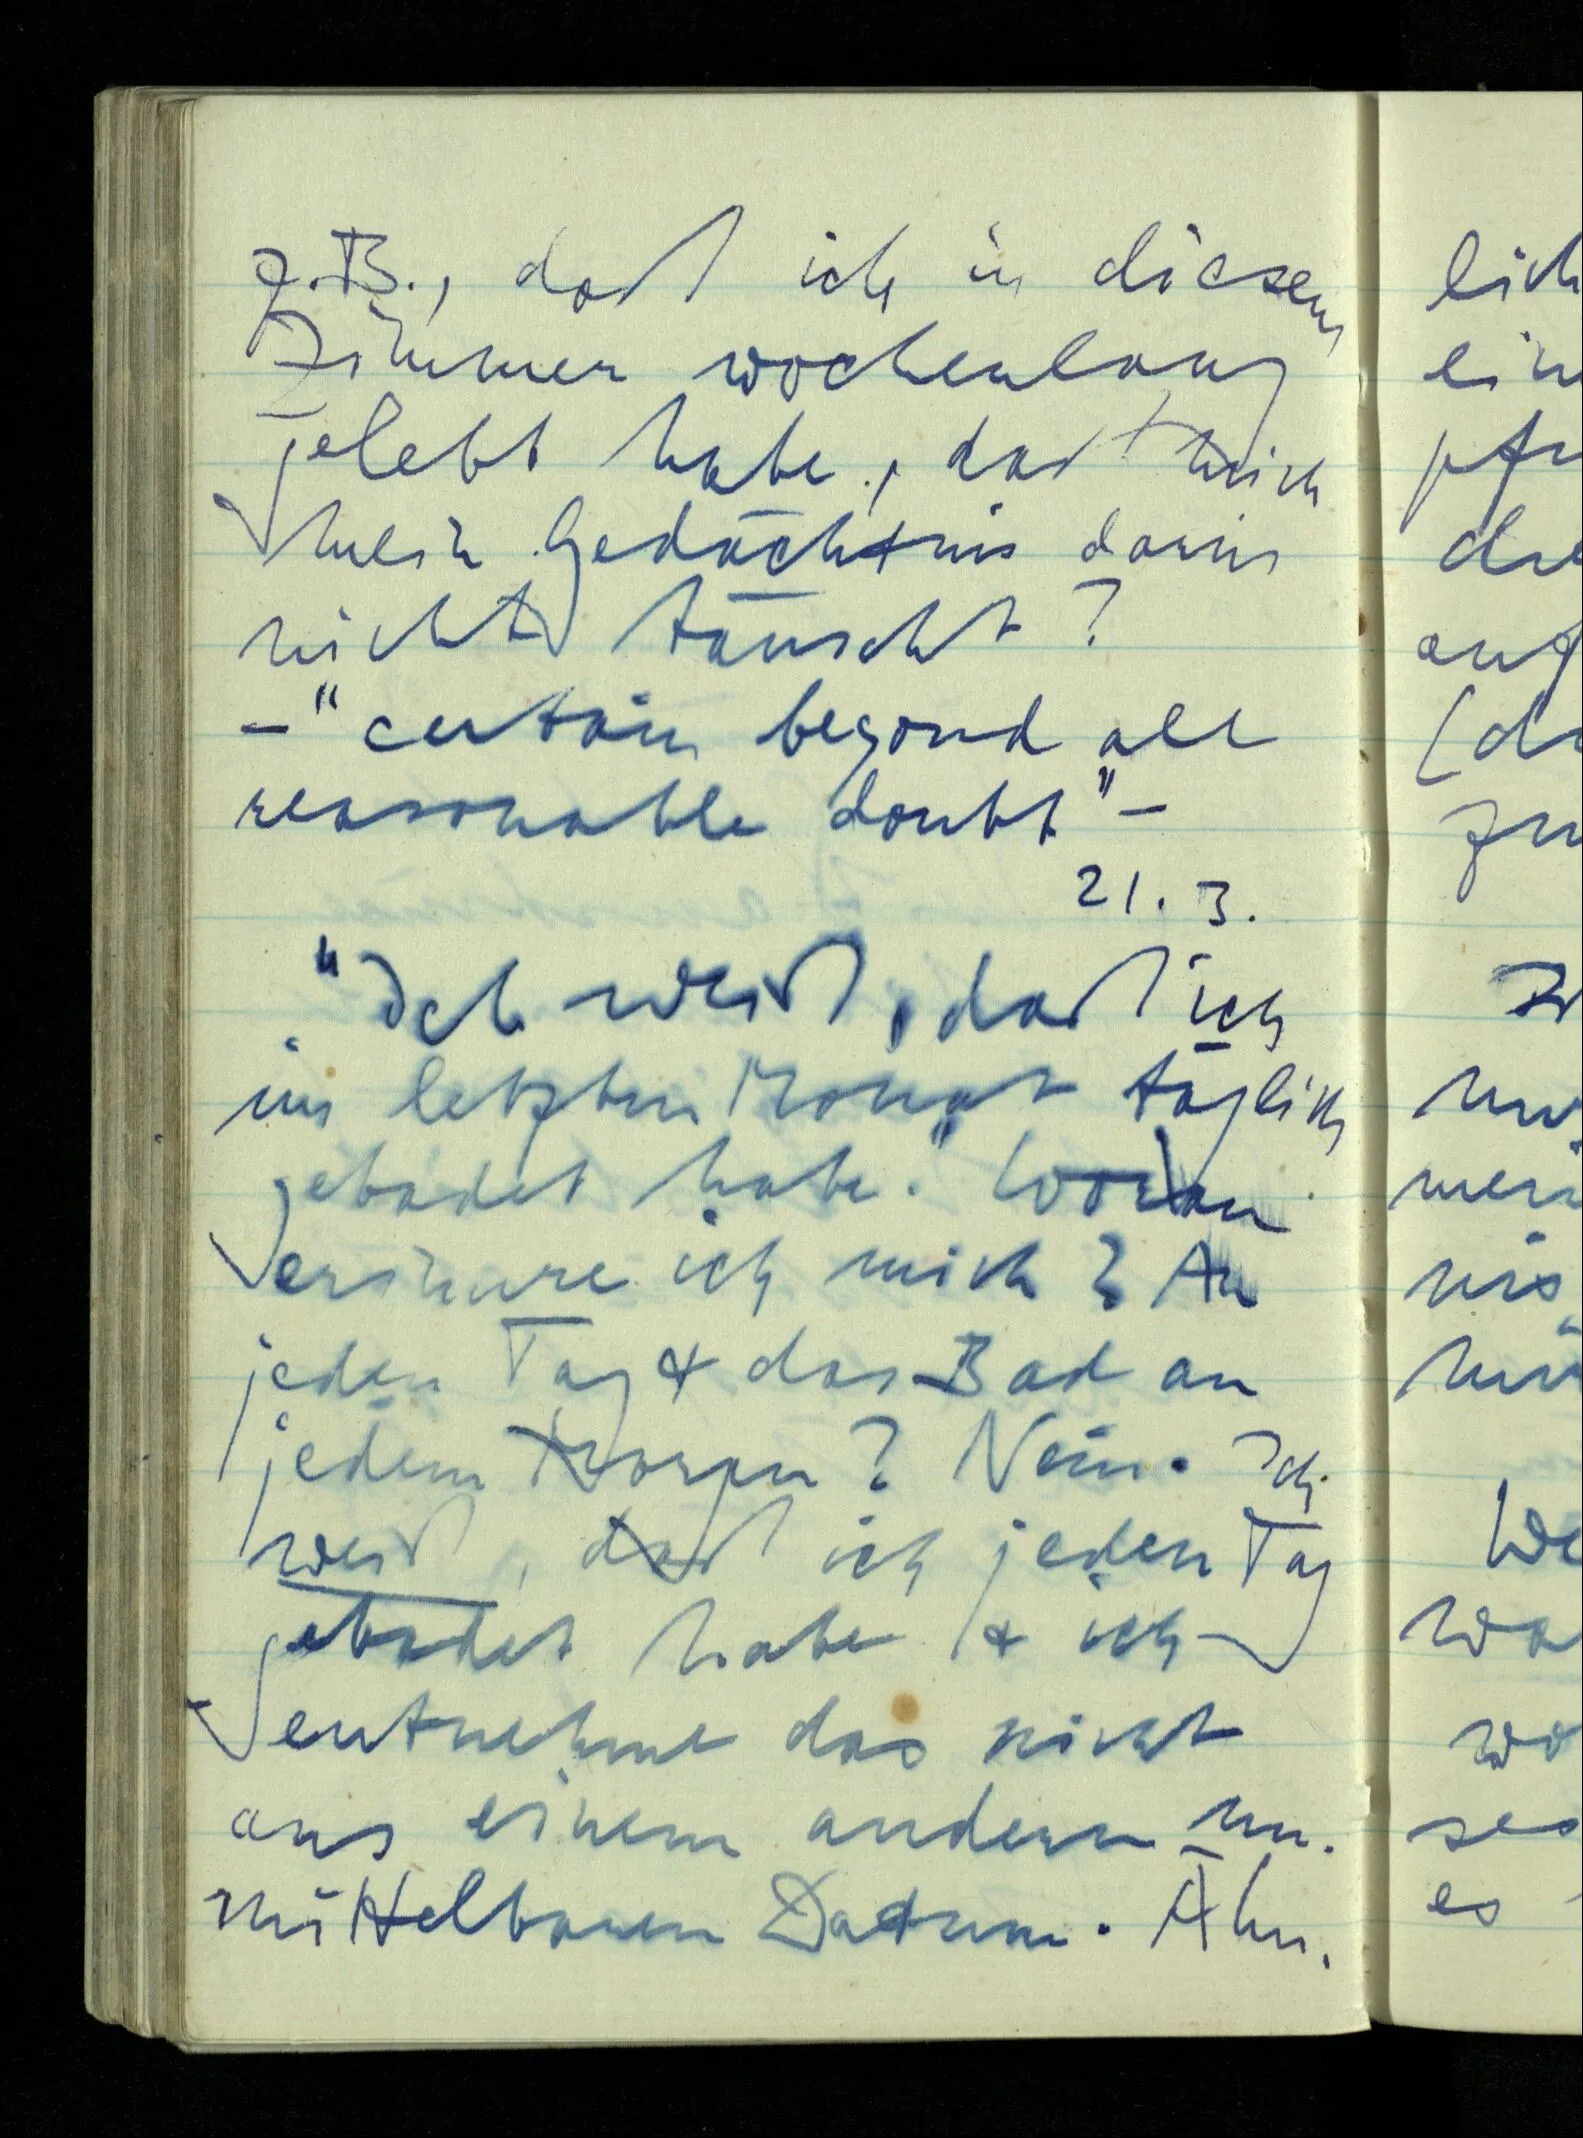 z.B., daß ich in diesem
Zimmer wochenlang
gelebt habe, daß mich
mein Gedächtnis darin
nicht täuscht?
– "certain beyond all
reasonable doubt" –
21. 3.
"Ich weiß, daß ich
im letzten Monat täglich
gebadet habe." Woran
erinnre ich mich? An
jeden Tag & das Bad an
jedem Morgen? Nein. Ich
weiß, daß ich jeden Tag
gebadet habe & ich
entnehme das nicht
aus einem andern un-
mittelbaren Datum. Ähn-
lich
auf
es